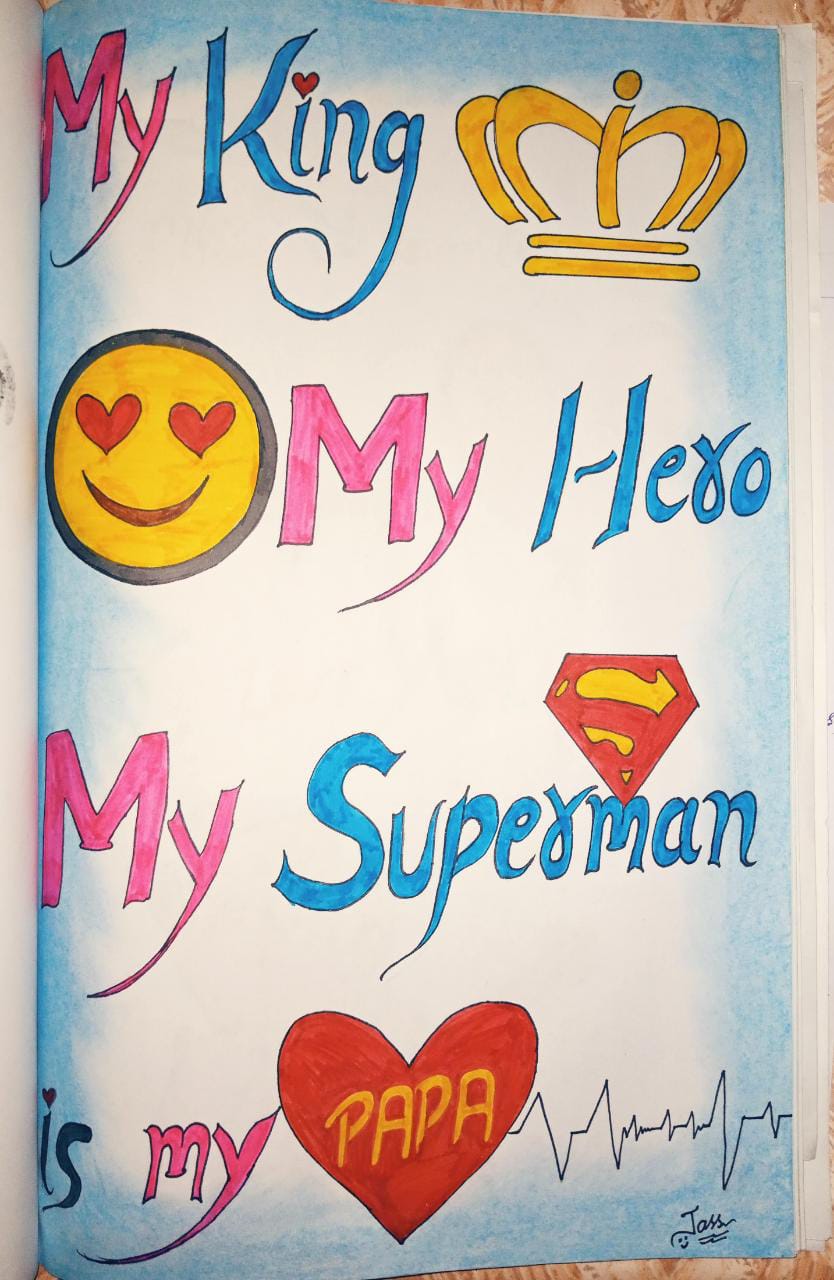 My King
My Hero
My Superman
is my PAPA
Jass